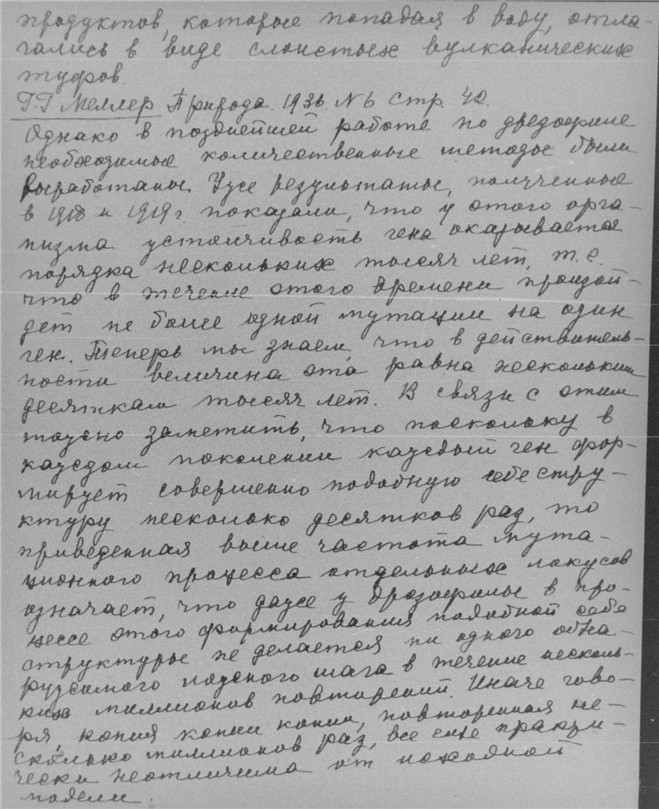 продуктов, которые попадая в воду, отла-
гались в виде слоистых вулканических
туфов.
Г.Г. Меллер Природа. 1936 № 6 стр. 42.
Однако в позднейшей работе по дрозофиле
необходимые количественные методы были
выработаны. Уже результаты, полученные
в 1918 и 1919 г. показали, что у этого орга-
низма устойчивость гена оказывается
порядка нескольких тысяч лет, т.е.
что в течение этого времени произой-
дет не более одной мутации на один
ген. Теперь мы знаем, что в действитель-
ности величина эта равна нескольким
десяткам тысяч лет. В связи с этим
можно заметить, что поскольку в
каждом поколении каждый ген фор-
мирует совершенно подобную себе стру-
ктуру несколько десятков раз, то
приведенная выше частота мута-
ционного процесса отдельных локусов
означает, что даже у дрозофилы в про-
цессе этого формирования подобной себе
структуры не делается ни одного обна-
ружимого ложного шага в течение несколь-
ких миллионов повторений. Иначе гово-
ря, копия копии копии, повторенная не-
сколько миллионов раз, все еще практи-
чески неотличима от исходной
модели.